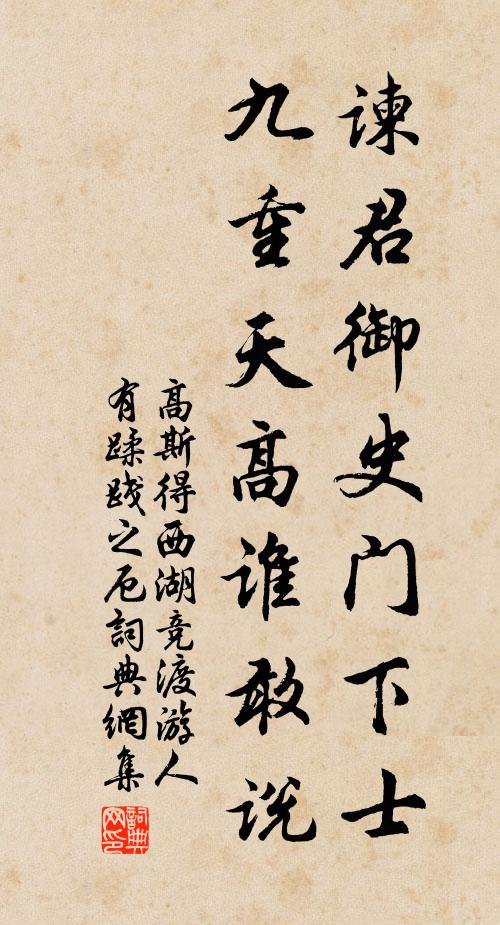 谏君御史门下士
九重天高谁敢说
高斯得西湖竞渡游人
有蹂践之厄詞典網集
詞典网印